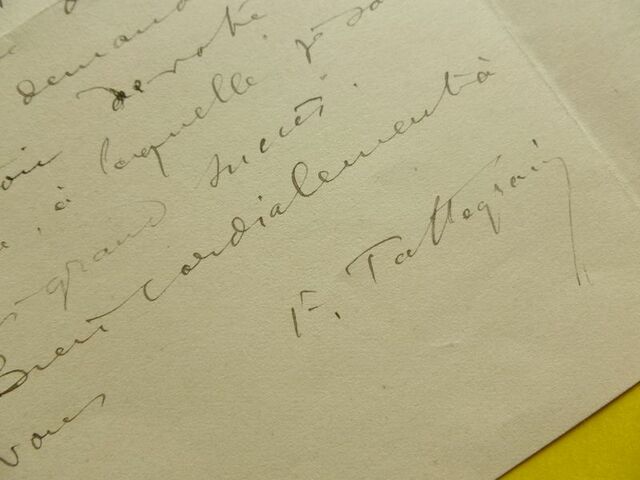 demand
de votre
à laquelle je
grand succès.
Bien cordialement à
vous
F. Tattegrain